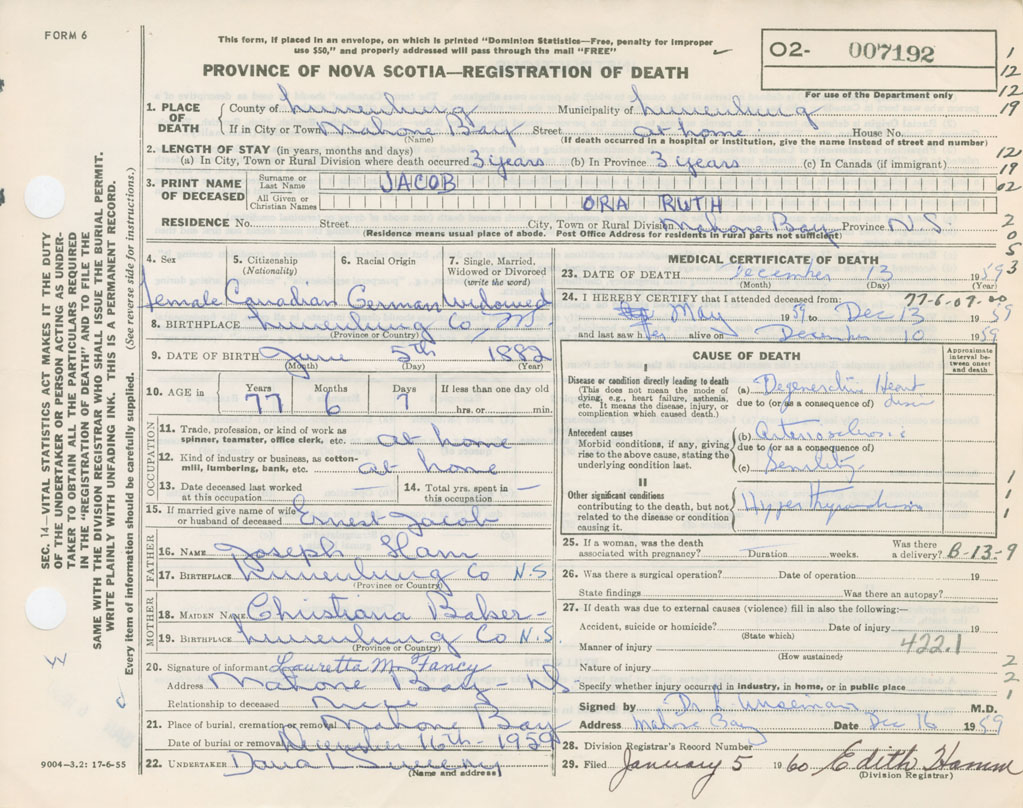 FORM 6
This form, if placed in an envelope, on which is printed "Dominion Statistics—Free, penalty for improper
use $50," and properly addressed will pass through the mail "FREE"
O2- 007192
For use of the Department only
PROVINCE OF NOVA SCOTIA—REGISTRATION OF DEATH
1. PLACE OF DEATH County of Lunenburg Municipality of Lunenburg
If in City or Town Mahone Bay Street at home House No.
(Name) (If death occurred in a hospital or institution, give the name instead of street and number)
2. LENGTH OF STAY (in years, months and days)
(a) In City, Town or Rural Division where death occurred 3 years (b) In Province 3 years (c) In Canada (if immigrant)
3. PRINT NAME OF DECEASED Surname or Last Name JACOB
All Given or Christian Names ORA RUTH
RESIDENCE No. Street City, Town or Rural Division Mahone Bay Province N.S.
(Residence means usual place of abode. Post Office Address for residents in rural parts not sufficient)
4. Sex 5. Citizenship (Nationality) 6. Racial Origin 7. Single, Married, Widowed or Divorced (write the word)
female Canadian German Widowed
8. BIRTHPLACE Lunenburg Co
(Province or Country)
9. DATE OF BIRTH June 5th 1882
(Month) (Day) (Year)
10. AGE in Years Months Days If less than one day old
77 6 hrs. or min.
OCCUPATION
11. Trade, profession, or kind of work as spinner, teamster, office clerk, etc. at home
12. Kind of industry or business, as cotton-mill, lumbering, bank, etc. at home
13. Date deceased last worked at this occupation —
14. Total yrs. spent in this occupation —
15. If married give name of wife or husband of deceased Ernest Jacob
FATHER
16. NAME Joseph Ham
17. BIRTHPLACE Lunenburg Co N.S.
(Province or Country)
MOTHER
18. MAIDEN NAME Christiana Balser -
19. BIRTHPLACE Lunenburg Co N.S.
(Province or Country)
20. Signature of informant Lauretta M. Fancy
Address Mahone Bay - NS
Relationship to deceased niece
21. Place of burial, cremation or removal Mahone Bay
Date of burial or removal December 16th - 1959
22. UNDERTAKER
(Name and address)
9004—3.2: 17-6-55
MEDICAL CERTIFICATE OF DEATH
23. DATE OF DEATH December 13 1959
(Month) (Day) (Year)
24. I HEREBY CERTIFY that I attended deceased from: 77-6-07-00
May 1959 to Dec 13 1959
and last saw her alive on December 10 1959
CAUSE OF DEATH
Approximate interval between onset and death
I
Disease or condition directly leading to death
(This does not mean the mode of dying, e.g., heart failure, asthenia, etc. It means the disease, injury, or complication which caused death.)
(a) Degenerative Heart
due to (or as a consequence of) disease
Antecedent causes
Morbid conditions, if any, giving rise to the above cause, stating the underlying condition last.
(b) Arteriosclerosis
due to (or as a consequence of)
(c) Senility
II
Other significant conditions
contributing to the death, but not related to the disease or condition causing it.
Hyperthyroidism
25. If a woman, was the death associated with pregnancy? Duration weeks. Was there a delivery? B-13-9
26. Was there a surgical operation? Date of operation 19
State findings Was there an autopsy?
27. If death was due to external causes (violence) fill in also the following:—
Accident, suicide or homicide? Date of injury 19
(State which)
Manner of injury 422.1
(How sustained)
Nature of injury
Specify whether injury occurred in industry, in home, or in public place
Signed by Dr. M.D.
Address Mahone Bay Date Dec 16 1959
28. Division Registrar's Record Number
29. Filed January 5 1960 Edith Hamm
(Division Registrar)
1
12
12
19
12
19
02
2
0
5
3
1
1
1
2
2
1
SEC. 14—VITAL STATISTICS ACT MAKES IT THE DUTY
OF THE UNDERTAKER OR PERSON ACTING AS UNDER-
TAKER TO OBTAIN ALL THE PARTICULARS REQUIRED
IN THE "REGISTRATION OF DEATH" AND TO FILE THE
SAME WITH THE DIVISION REGISTRAR WHO SHALL ISSUE THE BURIAL PERMIT.
WRITE PLAINLY WITH UNFADING INK. THIS IS A PERMANENT RECORD.
Every item of information should be carefully supplied. (See reverse side for instructions.)